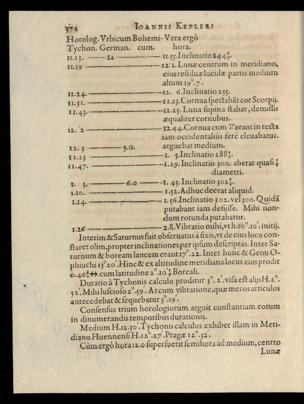 374 IOANNIS KEPLERI
Horolog. Vrbicum Bohemi- Vera ergò
Tychon. German. cum. hora.
11.13. 12 11.55. Inclinatio 244½.
11.19 12.1. Lunæ centrum in meridiano,
eius residuæ lucidæ partis medium
altum 19°.7.
11.24. 12. 6. Inclinatio 255.
11.31. 12.13. Cornua spectabāt cor Scorpij.
11.43. 12.25. Luna supina stabat, demissis
æqualiter cornubus.
12. 2 12.44. Cornua cum erant in recta
iam occidentaliùs ferè eleuabatur.
12. 3 5.0. arguebat medium.
11.23 1. 5. Inclinatio 288½.
11.47. 1.29. Inclinatio 300. aberat quasi
diametri.
1. 3 6.0 1. 45. Inclinatio 302½.
1.10. 1.52. Adhuc deerat aliquid.
1.14. 1.56. Inclinatio 302. vel 300. Quidā
putabant iam desisse. Mihi non-
dum rotunda putabatur.
1.26 2.8. Vibratio mihi, vt h. 10°.20'. initij.
Interim & Saturnus fuit obseruatus à fixis, vt de eius loco con-
staret olim, propter inclinationes per ipsum descriptas. Inter Sa-
turnum & boream lancem erant 17°.12. Inter hunc & Genu O-
phiuchi 13°.20'. Hinc & ex altitudine meridiana locus eius prodit
0.46 cum latitudine 2°.10 Boreali.
Duratio à Tychonis calculo proditur 3°. 2'. visa est alijs H. 2°.
52'. Mihi fuscioló 2°.59'. At cum vibratione, quæ meros articulos
antecedebat & sequebatur 3°.19'.
Consensus trium horologiorum arguit constantiam eorum
in dinumerandis temporibus durationis.
Medium H. 12.30'. Tychonis calculus exhibet illam in Meri-
diano Huennensi H. 12°.27. Pragæ 12°.32'.
Cùm ergò hora 12.0 superfuerit semihora ad medium, centro
Lunæ